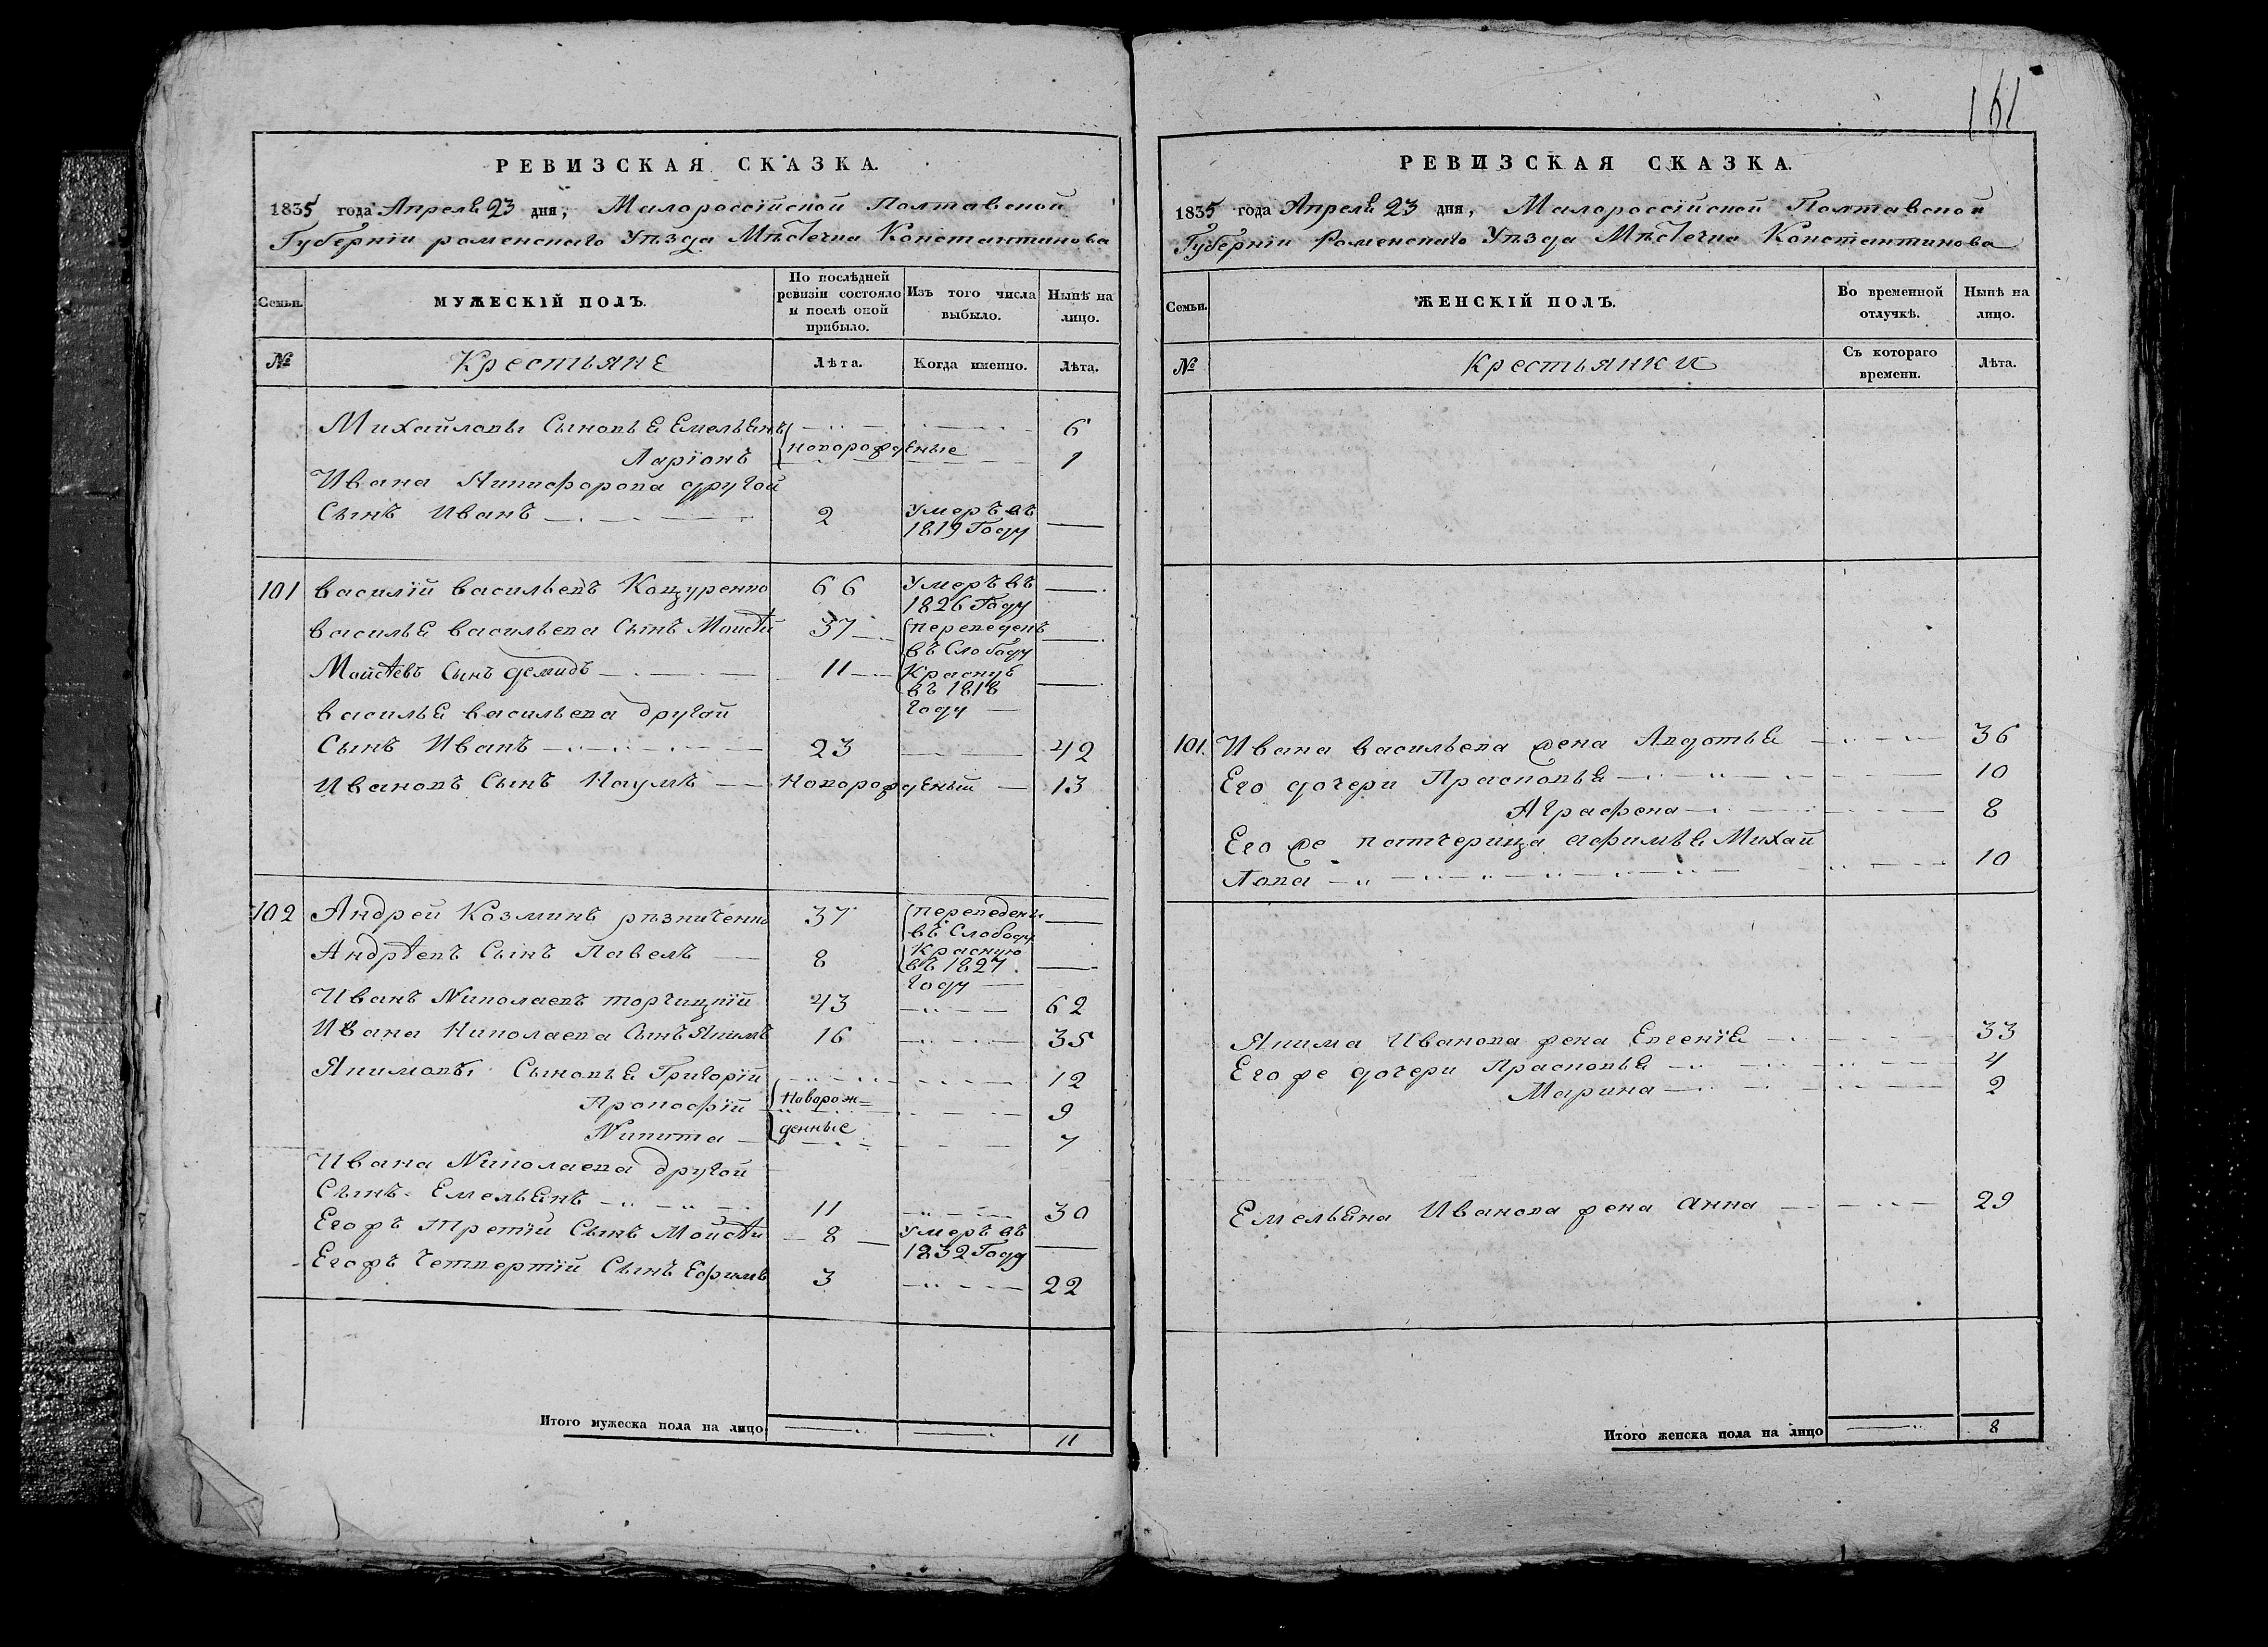 161
РЕВИЗСКАЯ СКАЗКА.
1835 года Апреля 23 дня, Малороссійской Полтавской
Губерніи роменскаго Уѣзда Мѣстечка Константинова
Семьи.
МУЖЕСКІЙ ПОЛЪ.
По послѣдней ревизіи состояло и послѣ оной прибыло.
Изъ того числа выбыло.
Нынѣ на лицо.
№
Крестьяне
Лѣта.
Когда именно.
Лѣта.
Михайловы Сыновья Емельянъ 6
новорожденые
Ларіонъ 1
Ивана Никифорова другой
Сынъ Иванъ 2 Умеръ въ 1819 Году
101 Василій Васильевъ Коцуренко 66 Умеръ въ 1826 Году
Василья Васильева Сынъ Моисѣй 37 переведенъ
Мойсѣевъ Сынъ Демидъ 11 въ Слободу Красную въ 1818 году
Василья Васильева другой
Сынъ Иванъ 23 42
Ивановъ Сынъ Наумъ Новорожденый 13
102 Андрей Козминъ рѣзниченко 37 переведены въ Слободу
Андрѣевъ Сынъ Павелъ 8 Красную въ 1827 году
Иванъ Николаевъ торчицкій 43 62
Ивана Николаева Сынъ Якимъ 16 35
Якимовы Сыновья Григорій 12
Прокофій Новорож= 9
Никита денные 7
Ивана Николаева другой
Сынъ Емельянъ 11 30
Егожъ третій Сынъ Мойсѣй 8 Умеръ въ 1832 Году
Егожъ четвертій Сынъ Ефимъ 3 22
Итого мужеска пола на лицо 11
РЕВИЗСКАЯ СКАЗКА.
1835 года Апреля 23 дня, Малороссійской Полтавской
Губерніи Роменскаго Уѣзда Мѣстечка Константинова
Семьи.
ЖЕНСКІЙ ПОЛЪ.
Во временной отлучкѣ.
Нынѣ на лицо.
№
Крестьянки
Съ котораго времени.
Лѣта.
101. Ивана Васильева жена Авдотья 36
Его дочери Прасковья 10
Аграфена 8
Его же патчерица Афимья Михай
лова 10
Якима Иванова жена Евгенія 33
Его же дочери Прасковья 4
Марина 2
Емельяна Иванова жена Анна 29
Итого женска пола на лицо 8